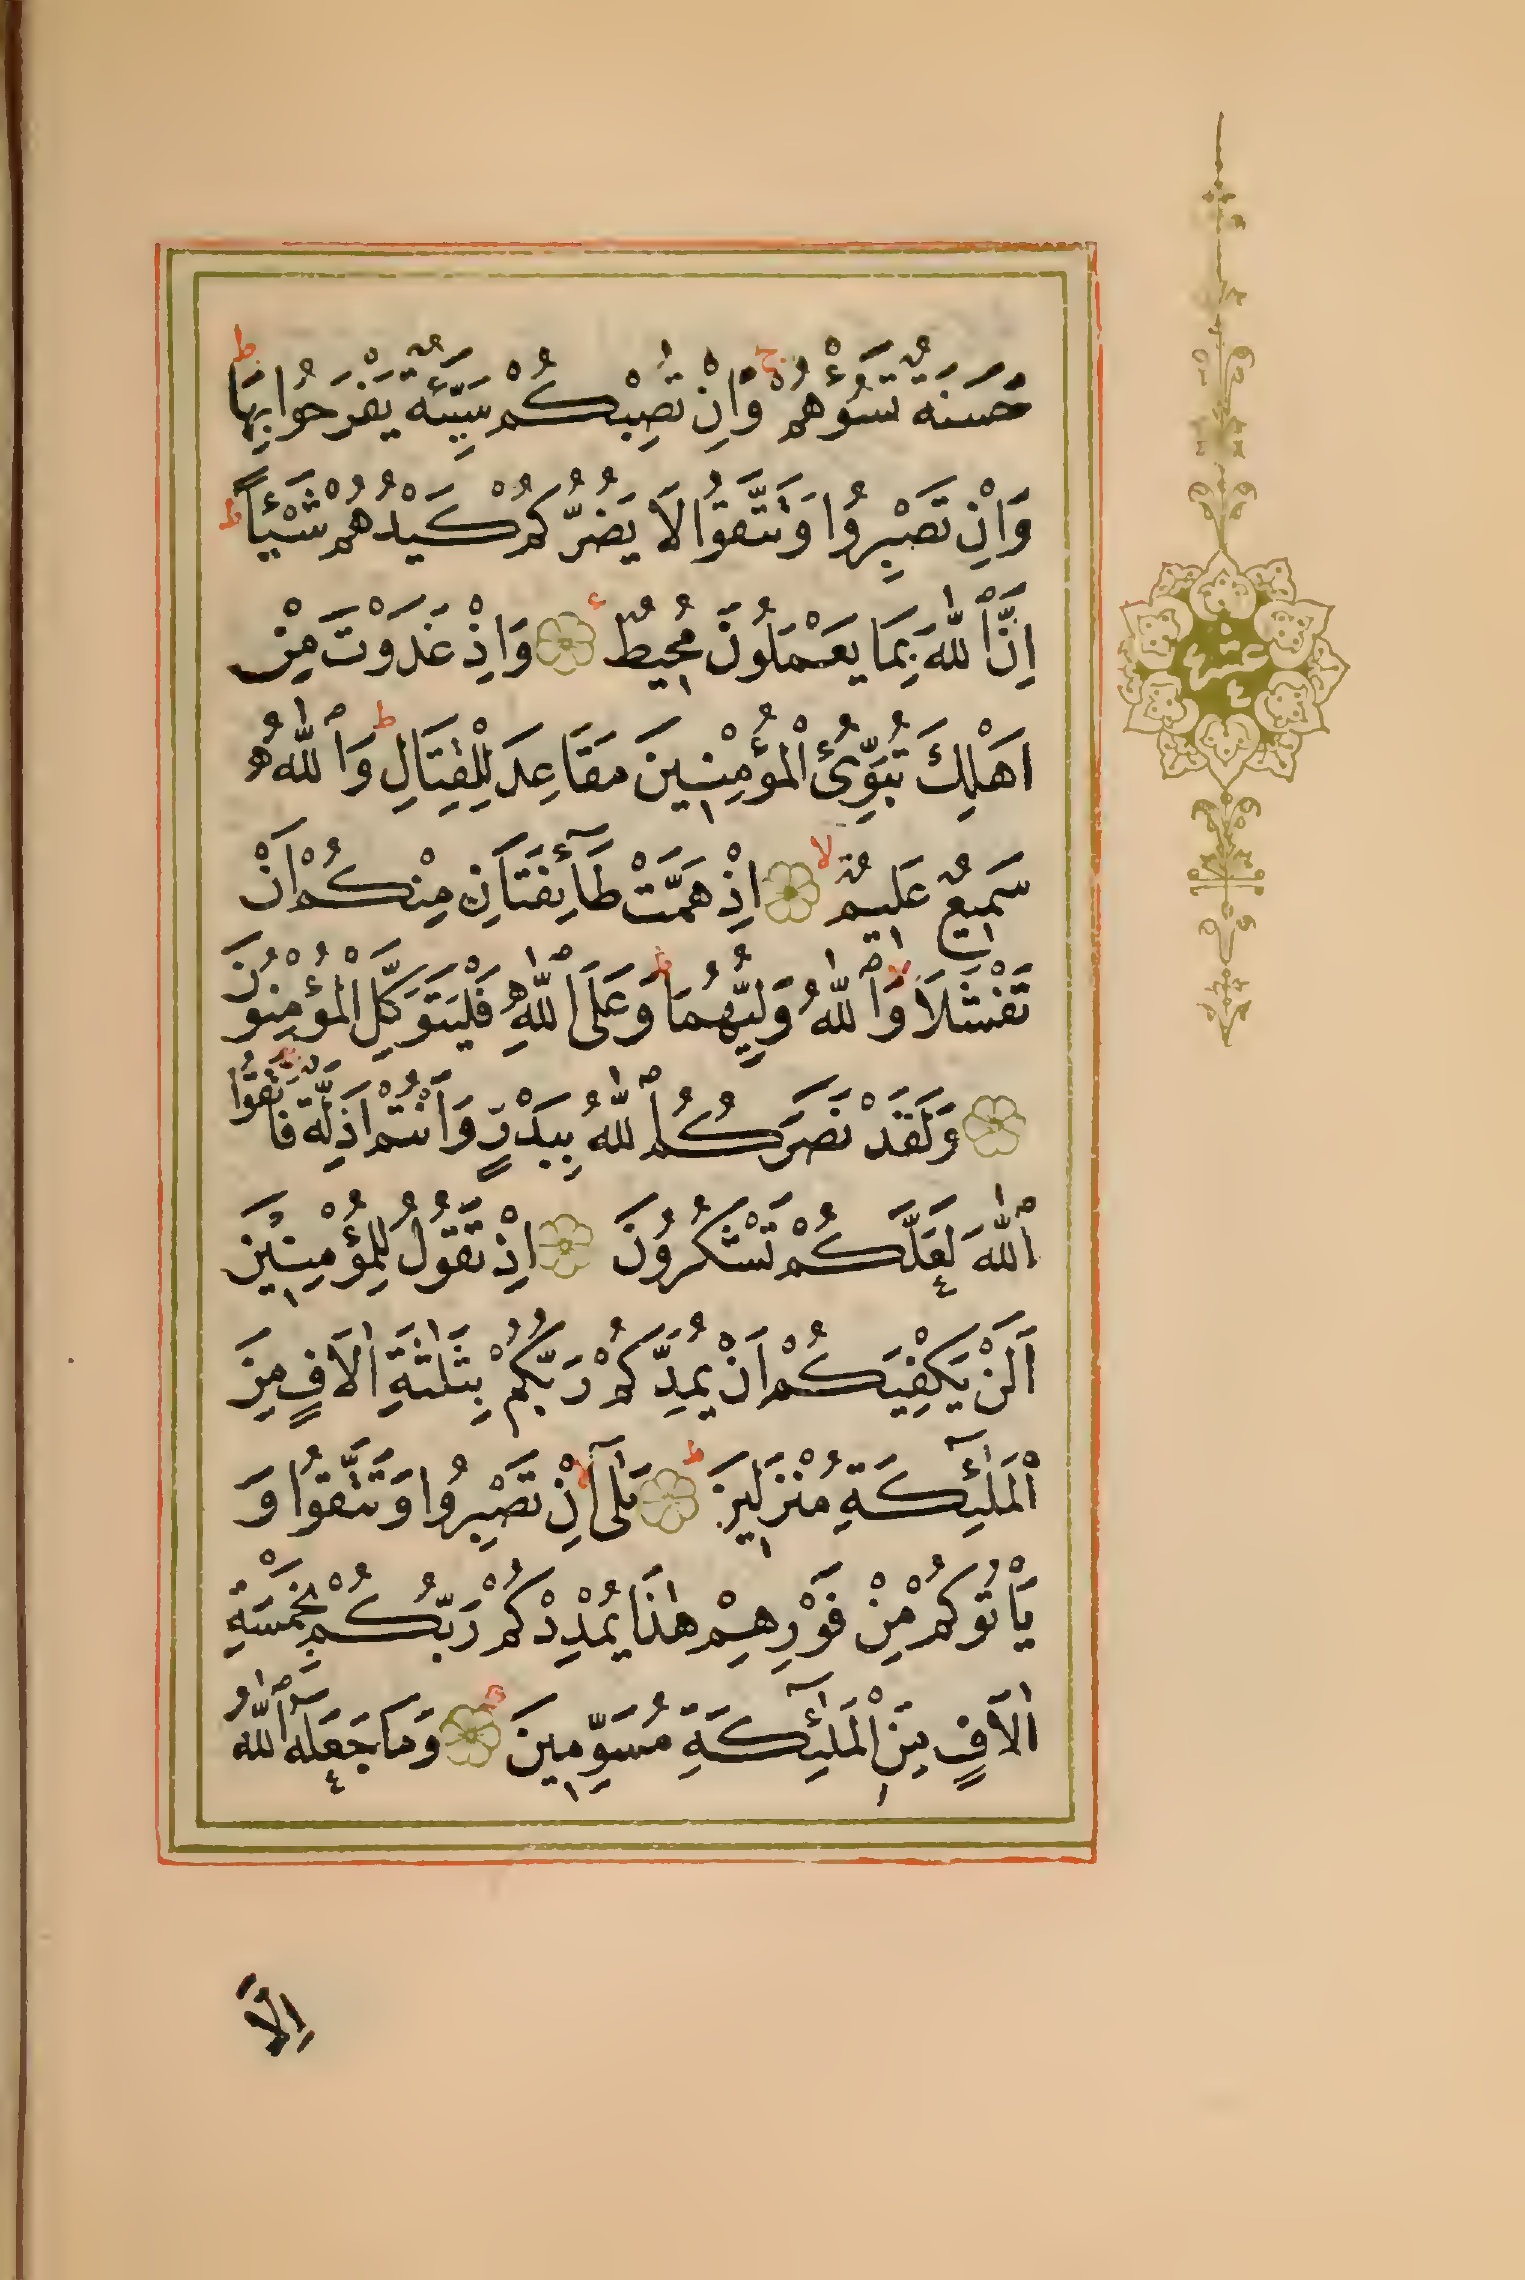 حَسَنَةٌ تَسُؤْهُمْ ج وَاِنْ تُصِبْكُمْ سَيِّئَةٌ يَفْرَحُوا بِهَا ط
وَاِنْ تَصْبِرُوا وَتَتَّقُوا لَا يَضُرُّكُمْ كَيْدُهُمْ شَيْـًٔا ط
اِنَّ ٱللّٰهَ بِمَا يَعْمَلُونَ مُحِيطٌ ع وَاِذْ غَدَوْتَ مِنْ
اَهْلِكَ تُبَوِّئُ الْمُؤْمِنِينَ مَقَاعِدَ لِلْقِتَالِ ط وَٱللّٰهُ
سَمِيعٌ عَلِيمٌ لا اِذْ هَمَّتْ طَآئِفَتَانِ مِنْكُمْ اَنْ
تَفْشَلَا لا وَٱللّٰهُ وَلِيُّهُمَا ط وَعَلَى ٱللّٰهِ فَلْيَتَوَكَّلِ الْمُؤْمِنُونَ
وَلَقَدْ نَصَرَكُمُ ٱللّٰهُ بِبَدْرٍ وَاَنْتُمْ اَذِلَّةٌ ج فَاتَّقُوا
ٱللّٰهَ لَعَلَّكُمْ تَشْكُرُونَ اِذْ تَقُولُ لِلْمُؤْمِنِينَ
اَلَنْ يَكْفِيَكُمْ اَنْ يُمِدَّكُمْ رَبُّكُمْ بِثَلٰثَةِ اٰلَافٍ مِنَ
الْمَلٰٓئِكَةِ مُنْزَلِينَ ط بَلٰٓى لا اِنْ تَصْبِرُوا وَتَتَّقُوا وَ
يَاْتُوكُمْ مِنْ فَوْرِهِمْ هٰذَا يُمْدِدْكُمْ رَبُّكُمْ بِخَمْسَةِ
اٰلَافٍ مِنَ الْمَلٰٓئِكَةِ مُسَوِّمِينَ وَمَا جَعَلَهُ ٱللّٰهُ
اِلَّا
عشر